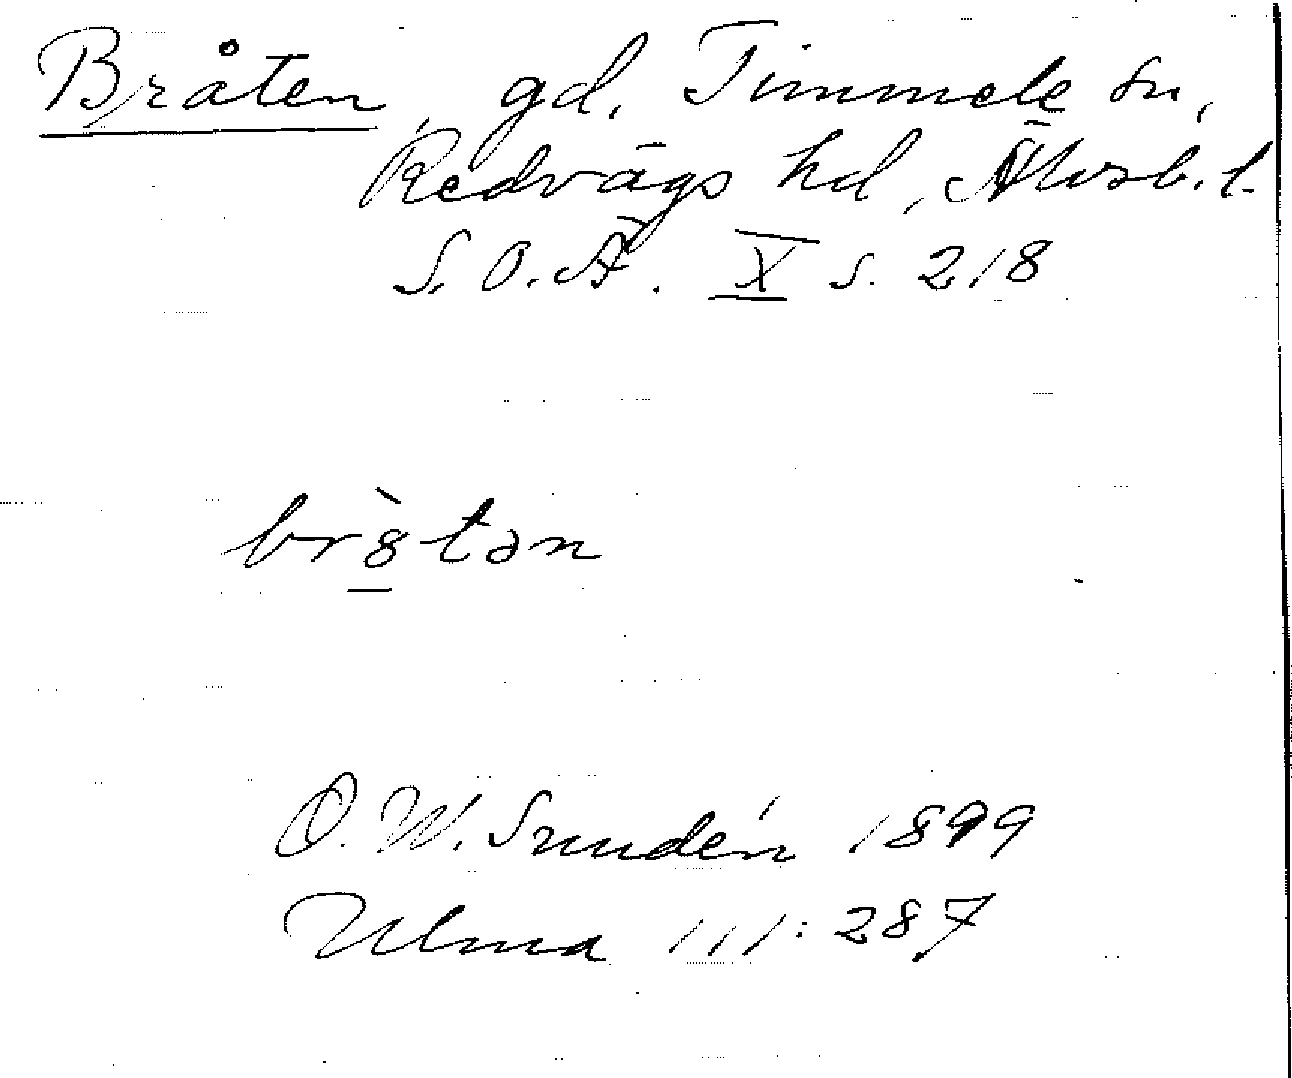 Bråten, gd. Timmele sn,
Redvägs hd, Älvsb. l.
S. O. Ä. X s. 218
br8̀tən
O. W. Sundén 1899
Ulma 111:287